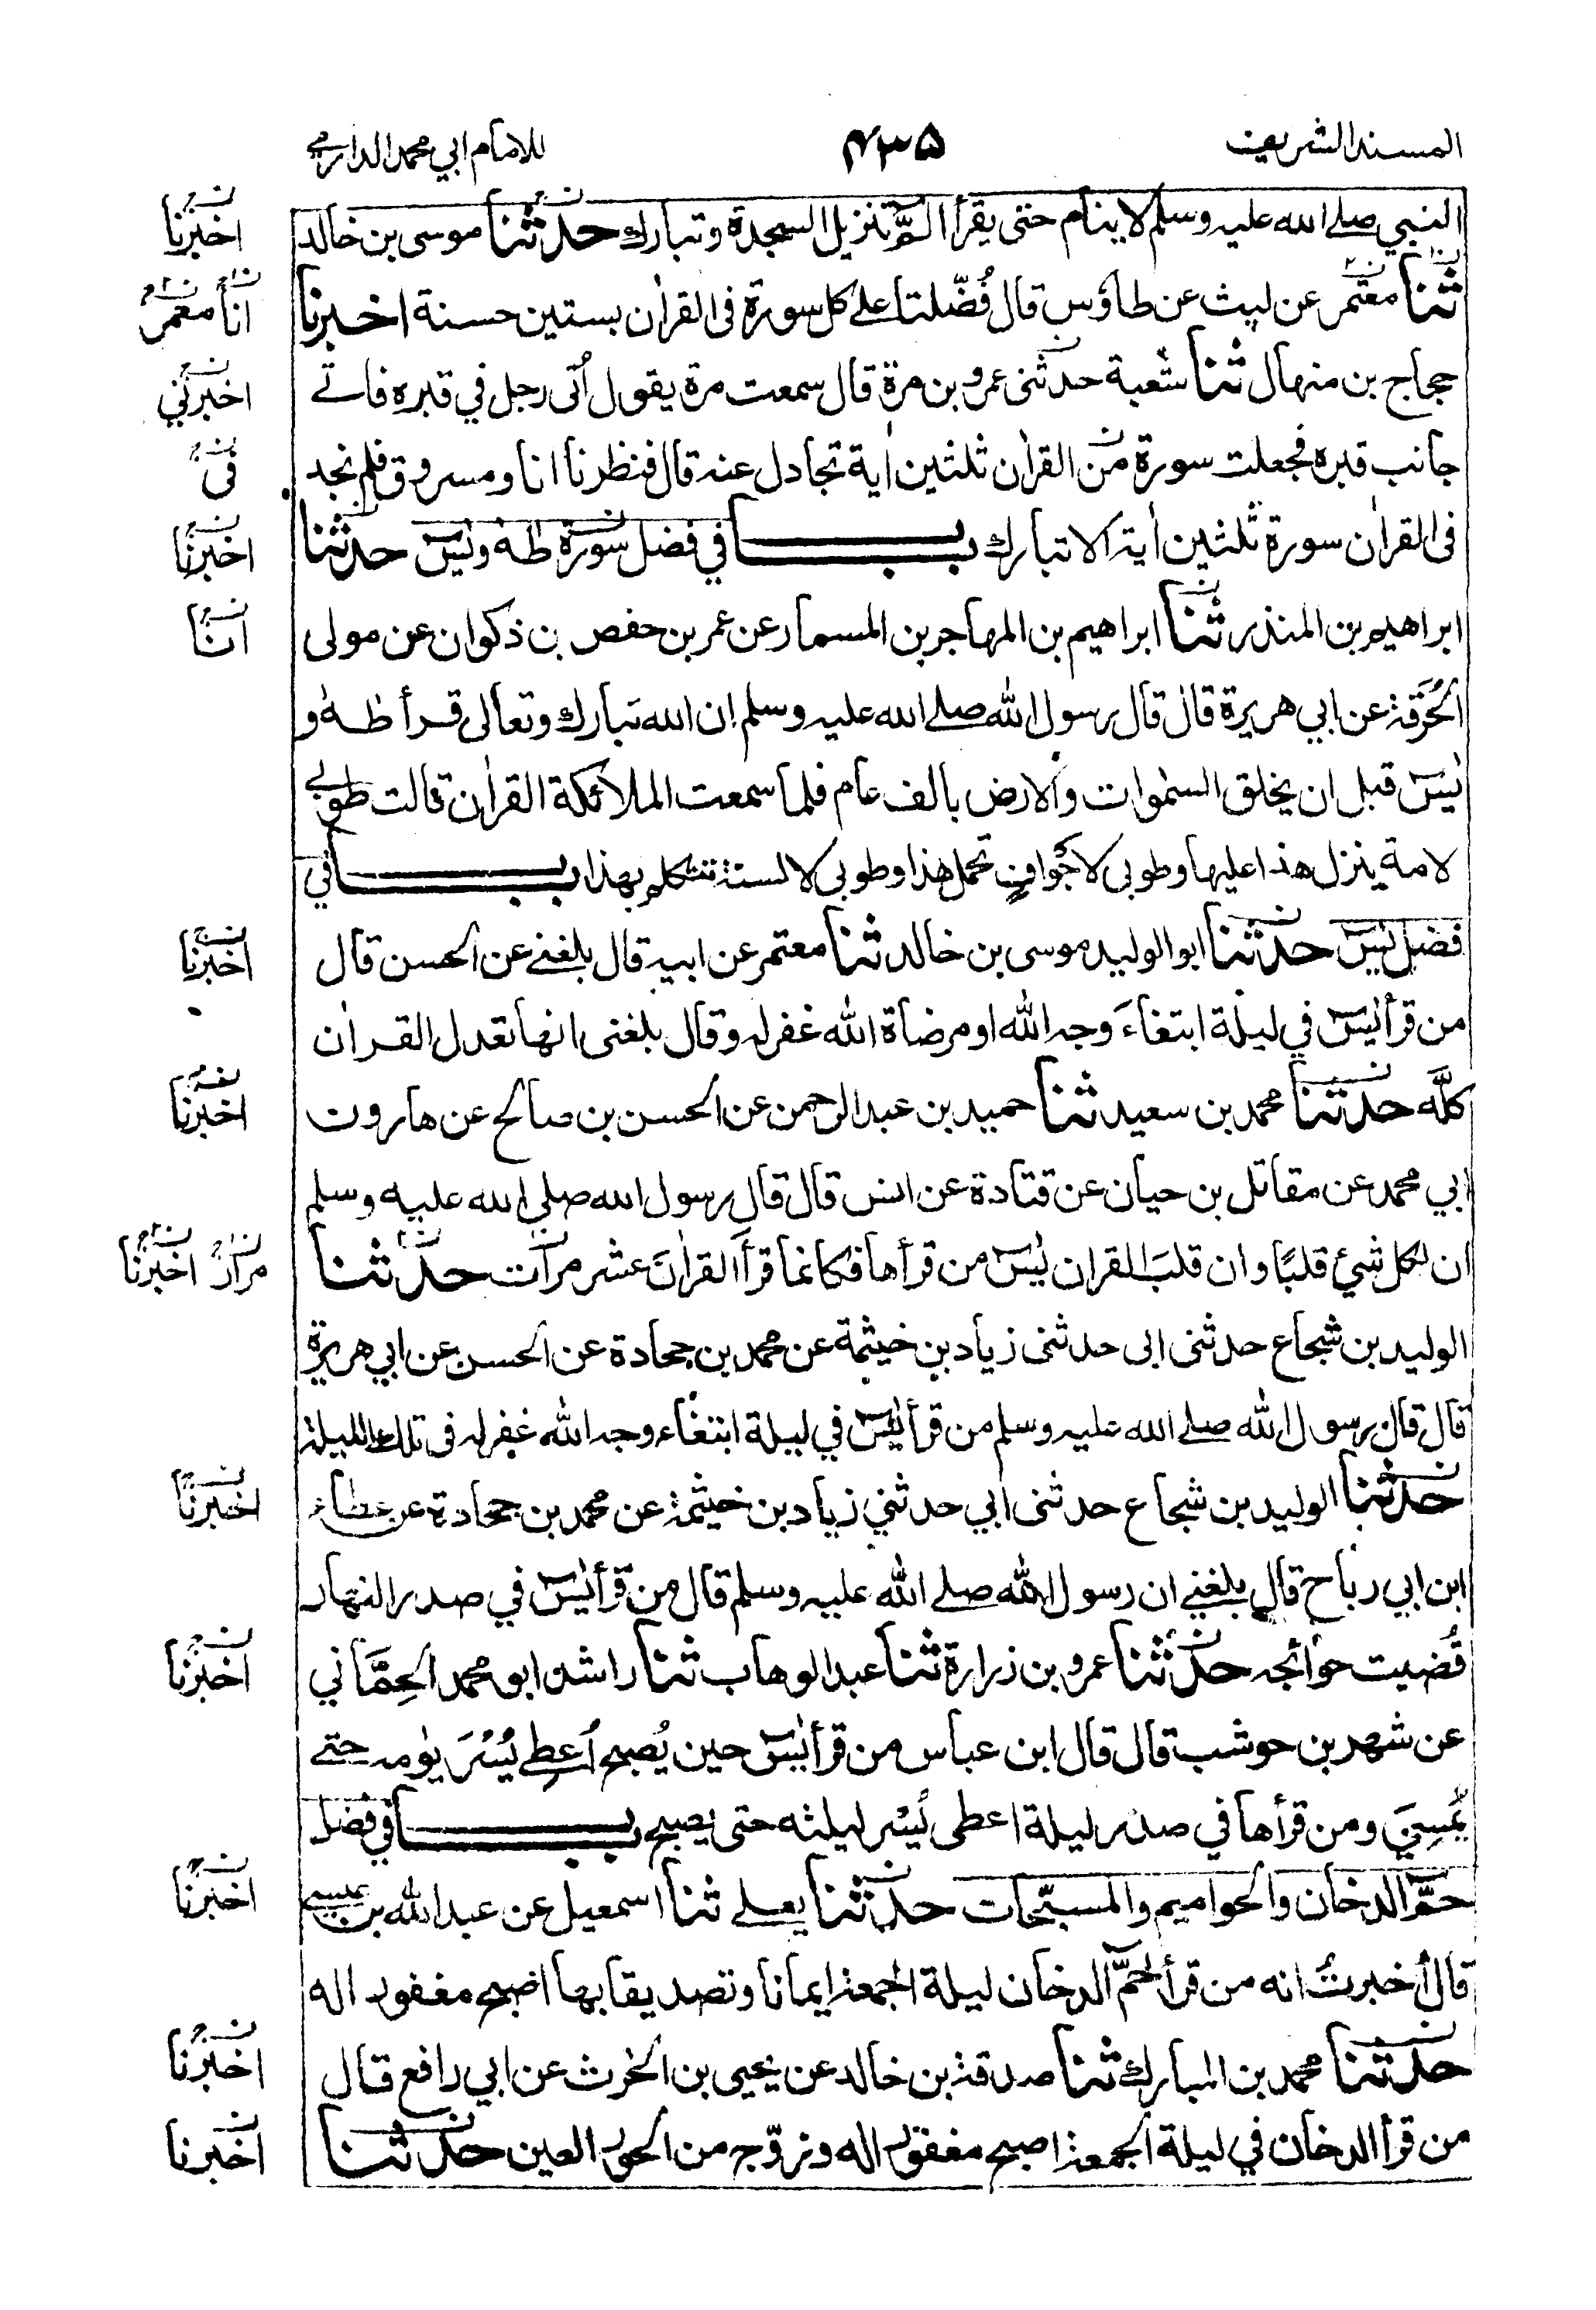 المسند الشريف ۴۳۵ للامام ابي محمد الدارمي
النبي صلے الله عليه وسلم لا ينام حتى يقرأ الٓمّٓ تنزيل السجدة وتبارك حدثنا موسى بن خالد
ثنا معتمر عن ليث عن طاؤس قال فُضّلتا علے كل سورة فى القراٰن بستين حسنة اخبرنا
حجاج بن منهال ثنا شعبة حدثنى عمرو بن مرة قال سمعت مرة يقول اُتى رجل في قبره فاتے
جانب قبره فجعلت سورة من القراٰن ثلثين اٰية تجادل عنه قال فنظرنا انا ومسروق فلم نجد
فى القراٰن سورة ثلثين اٰية الا تبارك باب في فضل سورة طٰهٰ ويٰسٓ حدثنا
ابراهيم بن المنذر ثنا ابراهيم بن المهاجر بن المسمار عن عمر بن حفص بن ذكوان عن مولى
الحُرَقة عن ابي هريرة قال قال رسول الله صلے الله عليه وسلم ان الله تبارك وتعالى قرأ طٰهٰ و
يٰسٓ قبل ان يخلق السمٰوات والارض بالف عام فلما سمعت الملائكة القراٰن قالت طوبے
لامة ينزل هذا عليها وطوبى لاجواف تحمل هذا وطوبى لالسنة تتكلم بهذا باب في
فضل يٰسٓ حدثنا ابو الوليد موسى بن خالد ثنا معتمر عن ابيه قال بلغنے عن الحسن قال
من قرأ يٰسٓ في ليلة ابتغاءَ وجه الله او مرضاة الله غفر له وقال بلغنى انها تعدل القراٰن
كلَّه حدثنا محمد بن سعيد ثنا حميد بن عبد الرحمن عن الحسن بن صالح عن هارون
ابي محمد عن مقاتل بن حيان عن قتادة عن انس قال قال رسول الله صلي الله عليه وسلم
ان لكل شئ قلبًا وان قلبَ القراٰن يٰسٓ من قرأها فكانما قرأ القراٰنَ عشر مرات حدثنا
الوليد بن شجاع حدثنى ابى حدثنى زياد بن خيثمة عن محمد بن جحادة عن الحسن عن ابي هريرة
قال قال رسول الله صلے الله عليه وسلم من قرأ يٰسٓ في ليلة ابتغاء وجه الله غفر له فى تلك الليلة
حدثنا الوليد بن شجاع حدثنى ابي حدثني زياد بن خيثمة عن محمد بن جحادة عن عطاء
ابن ابي رباح قال بلغنے ان رسول الله صلے الله عليه وسلم قال من قرأ يٰسٓ في صدر النهار
قُضيت حوائجه حدثنا عمرو بن زرارة ثنا عبد الوهاب ثنا راشد ابو محمد الحِمَّاني
عن شهر بن حوشب قال قال ابن عباس من قرأ يٰسٓ حين يُصبح اُعطے يُسْرَ يومه حتے
يُمسِيَ ومن قرأها في صدر ليلة اعطى يُسْر ليلته حتى يصبح باب في فضل
حمٓ الدخان والحواميم والمسبّحات حدثنا يعلے ثنا اسمعيل عن عبد الله بن عيسى
قال اُخبرتُ انه من قرأ حمٓ الدخان ليلة الجمعة ايمانا وتصديقا بها اصبح مغفورا له
حدثنا محمد بن المبارك ثنا صدقة بن خالد عن يحيى بن الحٰرث عن ابي رافع قال
من قرأ الدخان في ليلة الجمعة اصبح مغفورا له وزوّج من الحور العين حدثنا
اخبرنا
انا معمر
اخبرني
فى
اخبرنا
انا
اخبرنا
اخبرنا
مرار اخبرنا
اخبرنا
اخبرنا
اخبرنا
اخبرنا
اخبرنا